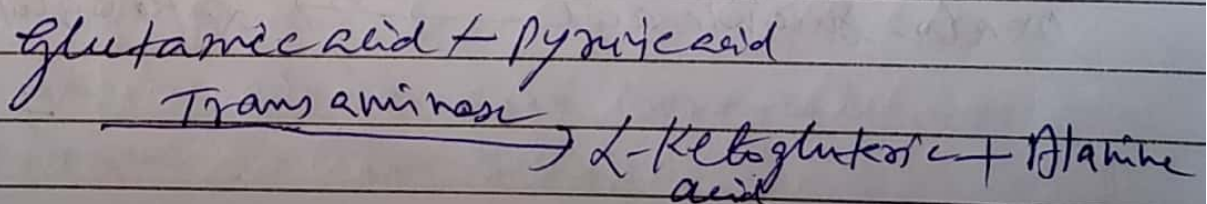 Glutamic acid + Pyruvic acid
Transaminase
→ α-Ketoglutaric + Alanine
acid